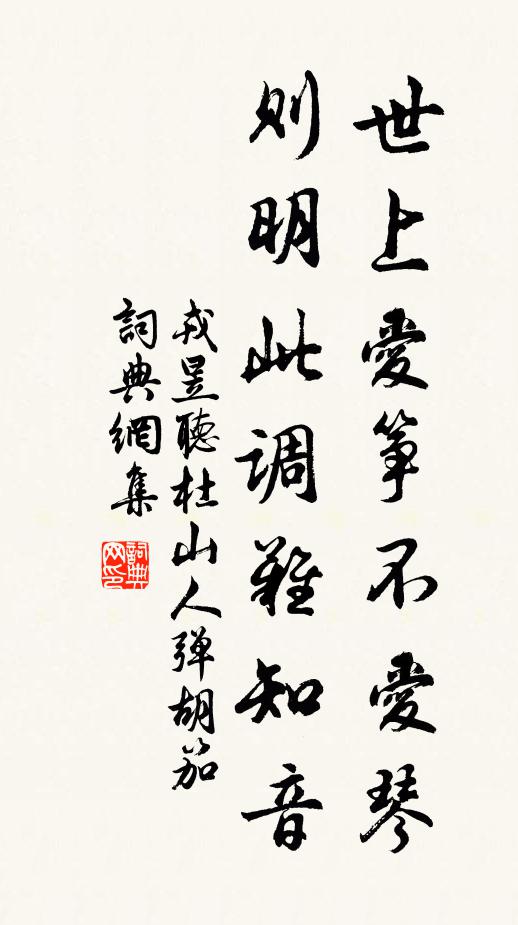 世上愛箏不愛琴
则明此调難知音
戎昱聽杜山人弹胡笳
詞典網集
詞典网印